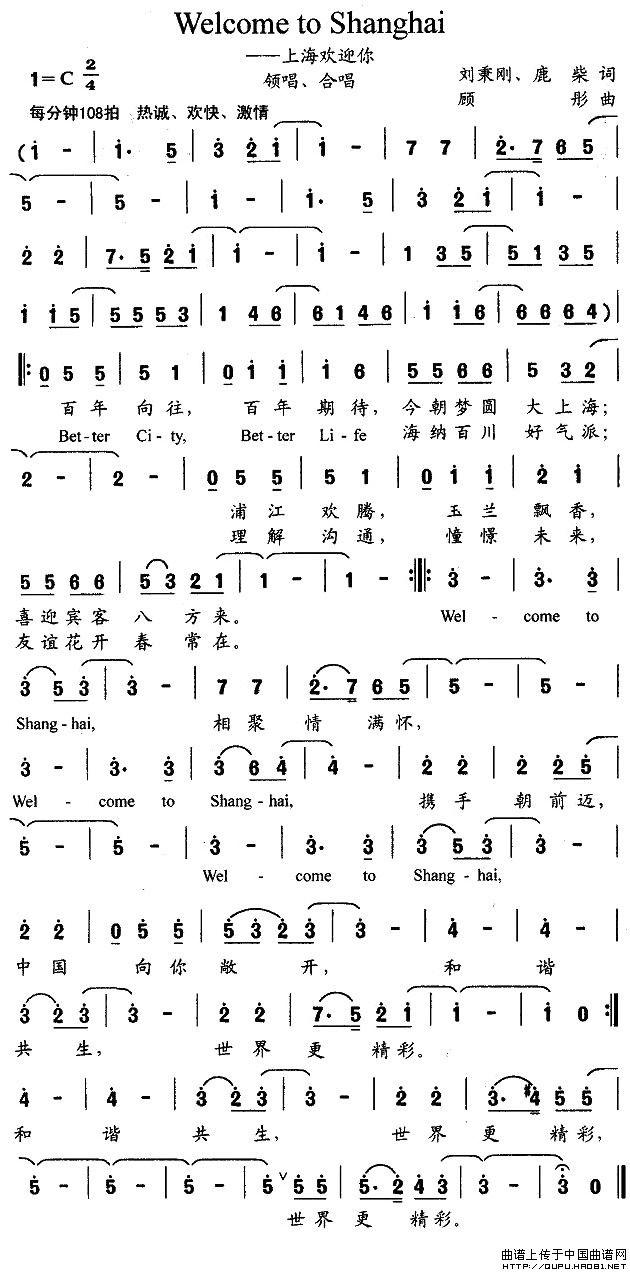 Welcome to Shanghai
——上海欢迎你
1=C 2/4
领唱、合唱
刘秉刚、鹿 柴 词
顾 彤 曲
每分钟108拍 热诚、欢快、激情
(i - | i· 5 | 3 2 i | i - | 7 7 | 2· 7 6 5 |
5 - | 5 - | i - | i· 5 | 3 2 i | i - |
2 2 | 7· 5 2 i | i - | i - | 1 3 5 | 5 1 3 5 |
i i 5 | 5 5 5 3 | 1 4 6 | 6 1 4 6 | i i 6 | 6 6 6 4 )|
‖: 0 5 5 | 5 1 | 0 i i | i 6 | 5 5 6 6 | 5 3 2 |
百 年 向 往, 百 年 期 待, 今 朝 梦 圆 大 上 海;
Bet-ter Ci-ty, Bet-ter Li-fe 海 纳 百 川 好 气 派;
2 - | 2 - | 0 5 5 | 5 1 | 0 i i | 2 i |
浦 江 欢 腾, 玉 兰 飘 香,
理 解 沟 通, 憧 憬 未 来,
5 5 6 6 | 5 3 2 1 | 1 - | 1 - :‖: 3 - | 3· 3 |
喜 迎 宾 客 八 方 来。 Wel - come to
友 谊 花 开 春 常 在。
3 5 3 | 3 - | 7 7 | 2· 7 6 5 | 5 - | 5 - |
Shang-hai, 相 聚 情 满 怀,
3 - | 3· 3 | 3 6 4 | 4 - | 2 2 | 2 2 5 |
Wel - come to Shang-hai, 携 手 朝 前 迈,
5 - | 5 - | 3 - | 3· 3 | 3 5 3 | 3 - |
Wel - come to Shang-hai,
2 2 | 0 5 5 | 5 3 2 3 | 3 - | 4 - | 4 - |
中 国 向 你 敞 开, 和 谐
3 2 3 | 3 - | 2 2 | 7· 5 2 i | i - | i 0 :‖
共 生, 世 界 更 精 彩。
4 - | 4 - | 3 2 3 | 3 - | 2 2 | 3· #4 5 5 |
和 谐 共 生, 世 界 更 精 彩,
5 - | 5 - | 5 - | 5 ∨ 5 5 | 5· 2 4 3 | 3 - | 3 0 ‖
世 界 更 精 彩。
曲谱上传于中国曲谱网
HTTP://QUPU.HAO81.NET